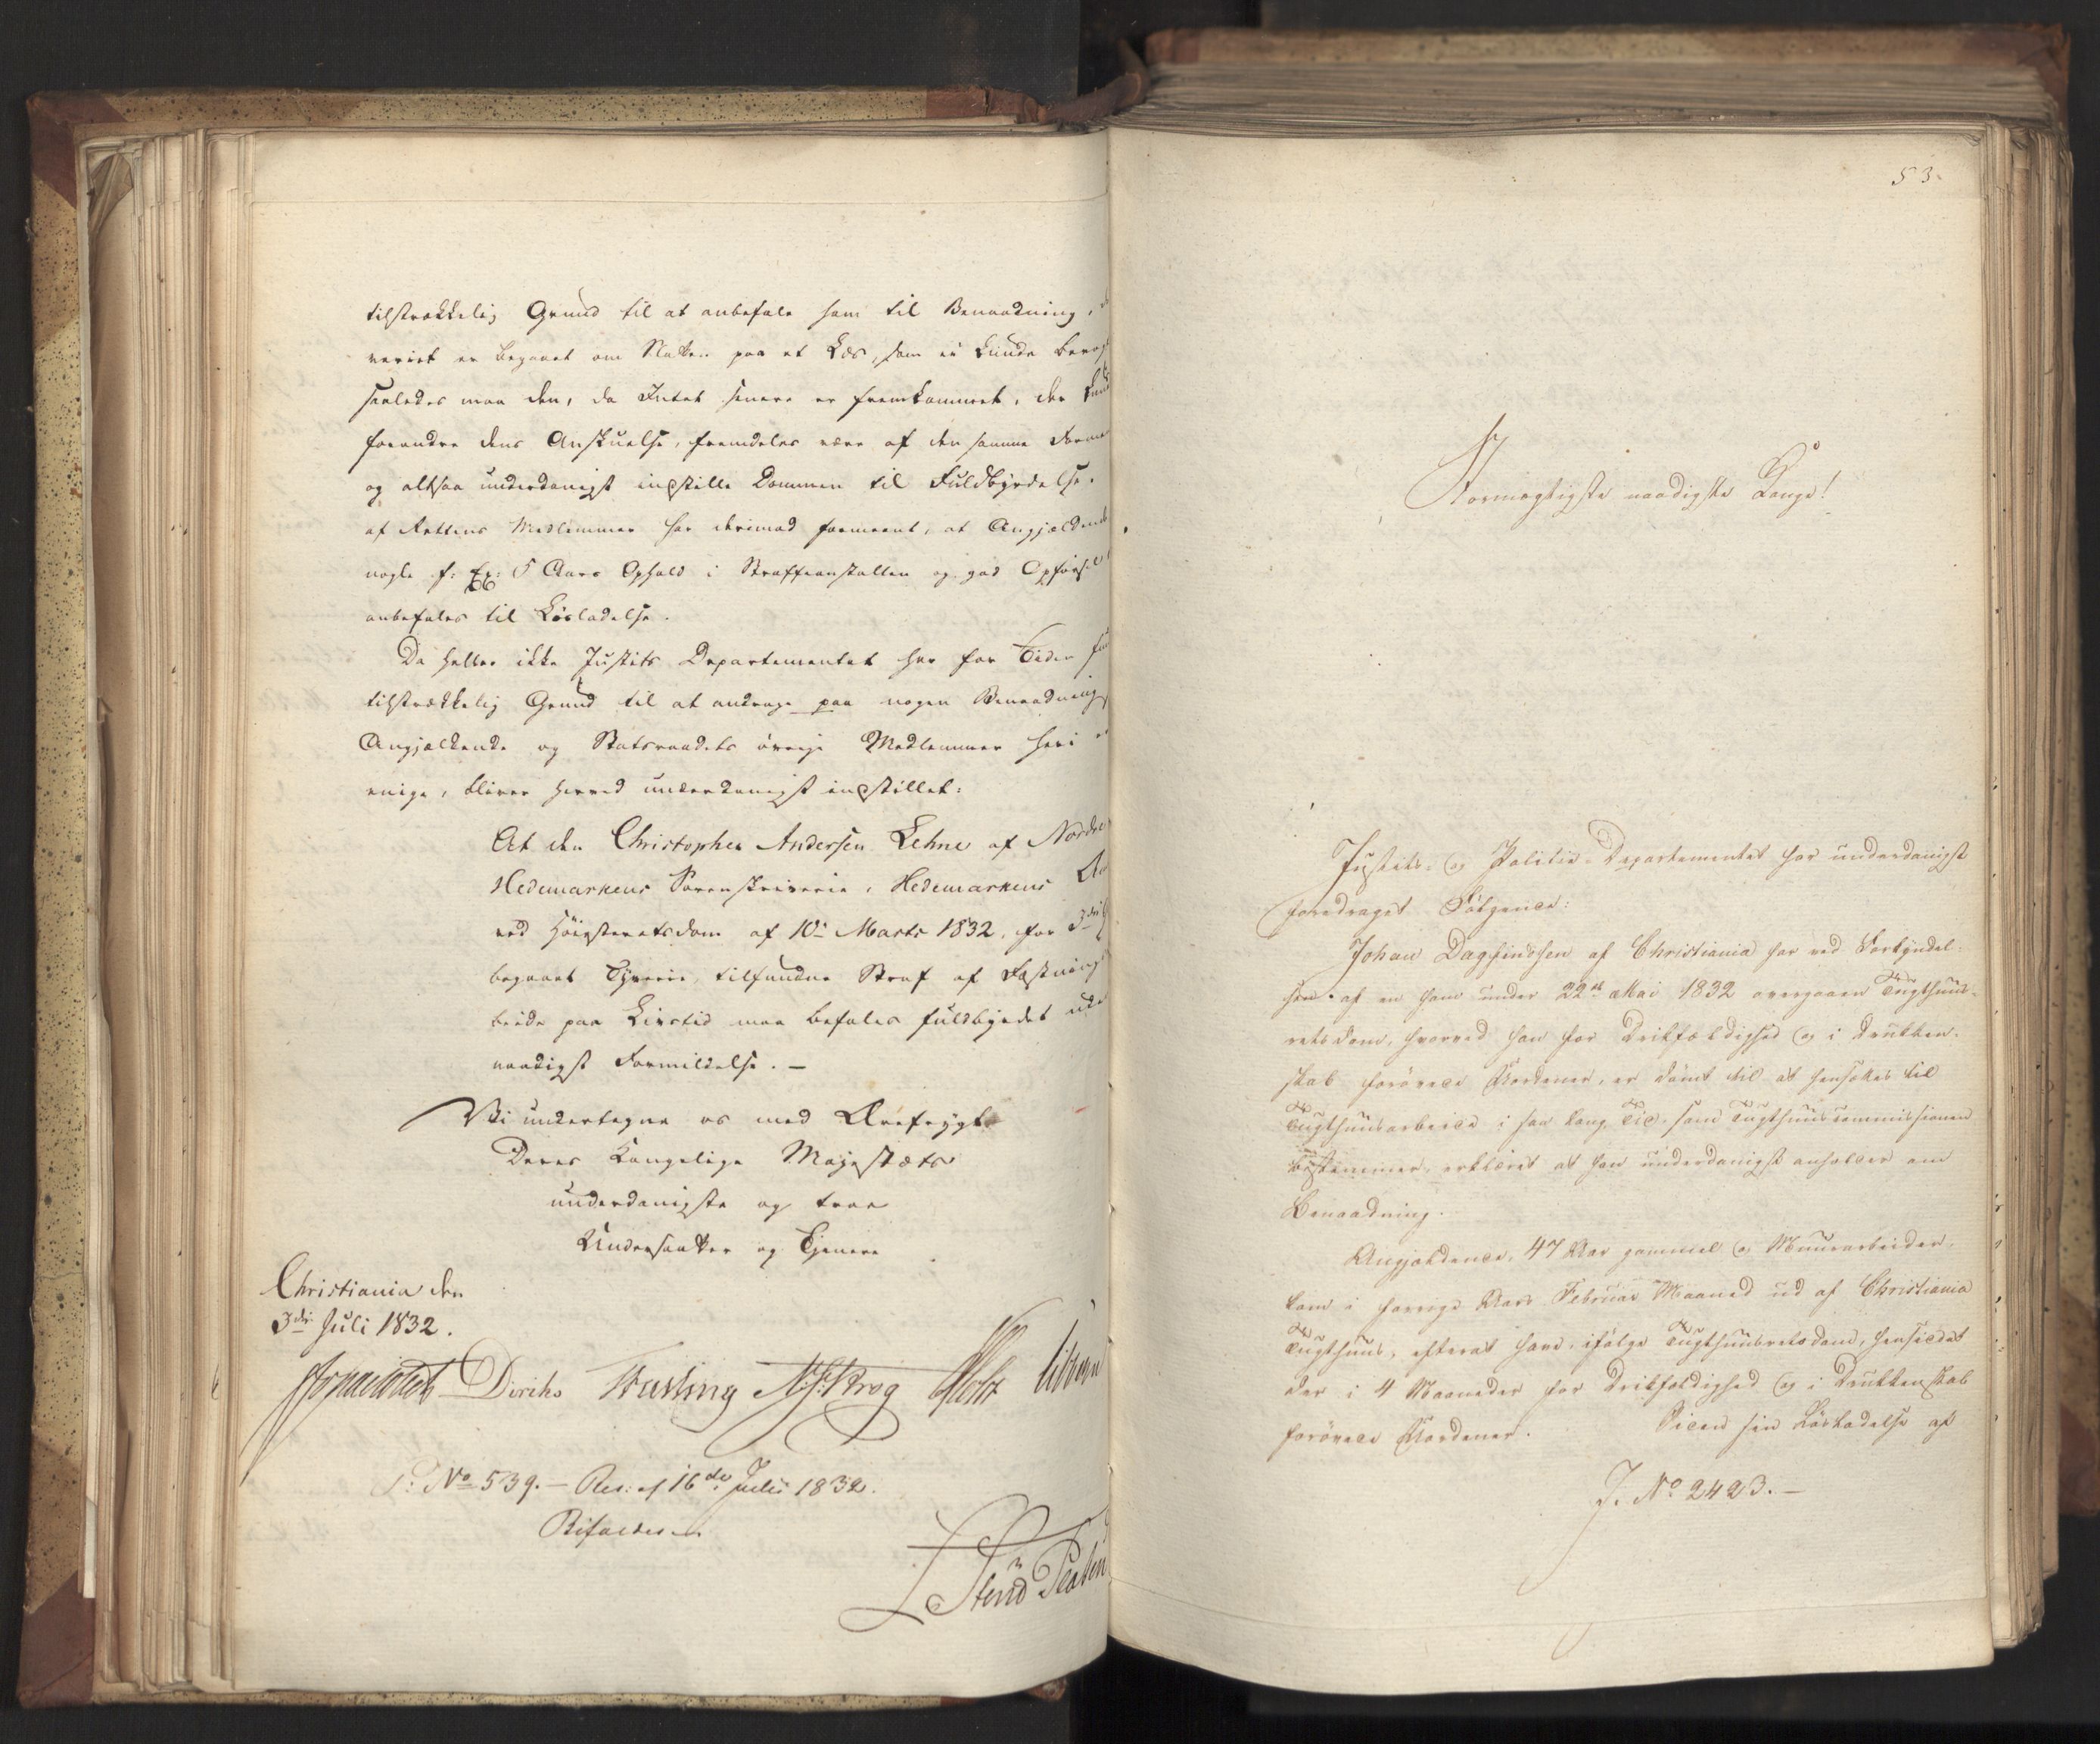 tilstrækkelig Grund til at anbefale ham til Benaadning,
er begaaet om Natten paa et Læs, som ei kunde
saaledes maa den, da Intet senere er fremkommet, der
forandre dens Anskuelse, fremdeles være af den samme
og altsaa underdanigst indstille Dommen til Fuldbyrdelse.
af Rettens Medlemmer har derimod formeent, at Angjældende
nogle f: Ex: 5 Aars Ophold i Straffeanstalten og god Opførsel
anbefales til Løsladelse.
Da heller ikke Justits Departementet her for Tiden
tilstrækkelig Grund til at andrage paa nogen Benaadning
Angjældende og Statsraadets øvrige Medlemmer heri
enige, bliver herved underdanigst indstillet:
At den Christopher Andersen Lehne af Nordre
Hedemarkens Sorenskriverie, Hedemarkens
ved Høiesteretsdom af 10de Marts 1832, for 3die
begaaet Tyverie, tilfundne Straf af Fæstnings
beide paa Livstid maa befales fuldbyrdet uden
naadigst Formildelse. —
Vi undertegne os med Ærefrygt
Deres Kongelige Majestæts
underdanigste og troe
Undersaatter og Tjenere
Christiania den
3die Juli 1832.
Diriks Krog Holst
No 539. — Res: af 16de Julii 1832.
Bifaldes
53.
Stormægtigste naadigste Konge!
Justits- og Politie-Departementet har underdanigst
foredraget Følgende:
Johan Dagfindsen af Christiania har ved Forkyndel-
sen af en ham under 22de Mai 1832 overgaaen Tugthuus-
retsdom, hvorved han for Drikfældighed og i Drukken-
skab forøvede Uordener, er dømt til at hensættes til
Tugthuusarbeide i saa lang Tid, som Tugthuuscommissionen
bestemmer, erklæret at han underdanigst anholder om
Benaadning.
Angjældende, 47 Aar gammel og Muurarbeider,
kom i forrige Aars Februar Maaned ud af Christiania
Tugthuus, efterat have, ifølge Tugthuusretsdom, hensiddet
der i 4 Maaneder for Drikfældighed og i Drukkenskab
forøvede Uordener. Siden sin Løsladelse af
J. No 2423. —